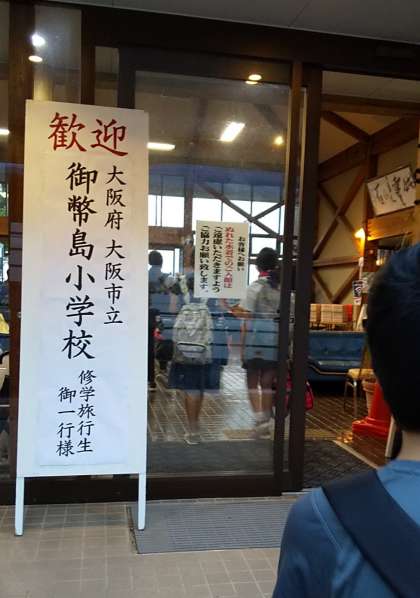 歓迎
大阪府 大阪市立
御幣島小学校
修学旅行生
御一行様
お客様へお願い
ぬれた水着でのご入館は
ご遠慮いただきますよう
ご協力お願い致します。